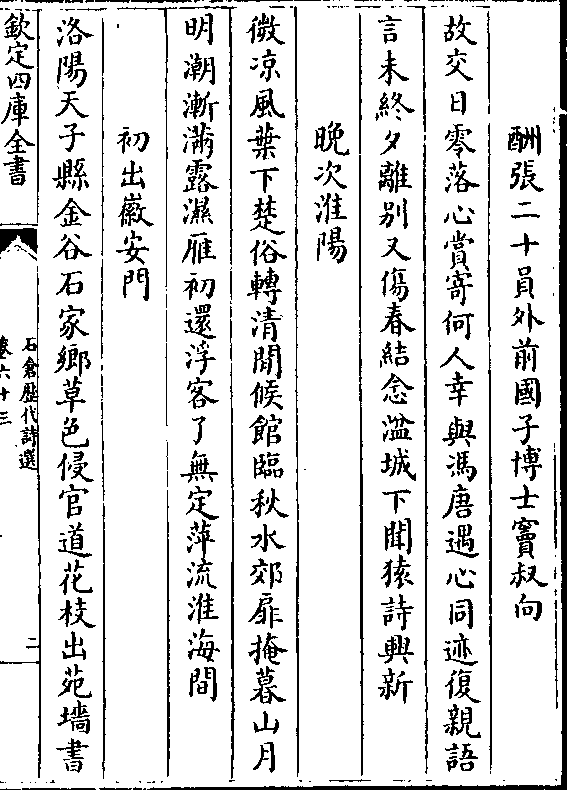 酬張二十員外前國子博士竇叔向
故交日零落心賞寄何人幸與馮唐遇心同迹復親語
言未終夕離别又傷春結念湓城下聞猿詩興新
晩次淮陽
微凉風葉下楚俗轉清閒候館臨秋水郊扉掩暮山月
明潮漸滿露濕雁初還浮客了無定萍流淮海間
初出徽安門
洛陽天子縣金谷石家鄉草色侵官道花枝出苑墻書
欽定四庫全書
石倉歷代詩選
卷六十三
二